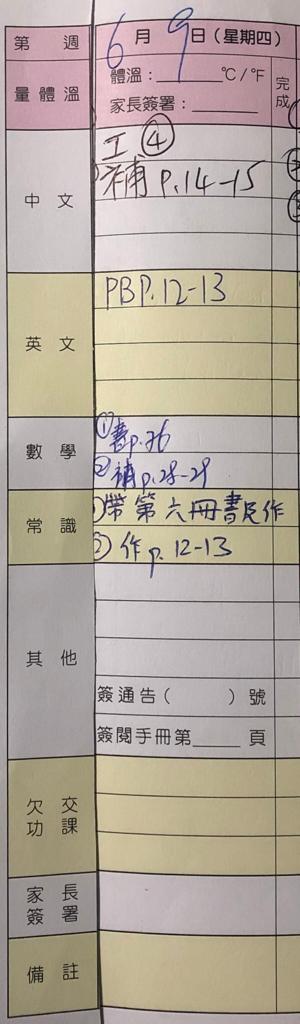 第 週 6月9日(星期四)
量體溫 體溫：______°C/°F 完成
家長簽署：______
中文 工④
補 P.14-15
英文 PB P.12-13
數學 ①書p.76
②補p.28-29
常識 ①帶第六冊書及作
②作p.12-13
其他
簽通告( )號
簽閱手冊第____頁
欠交功課
家長簽署
備註